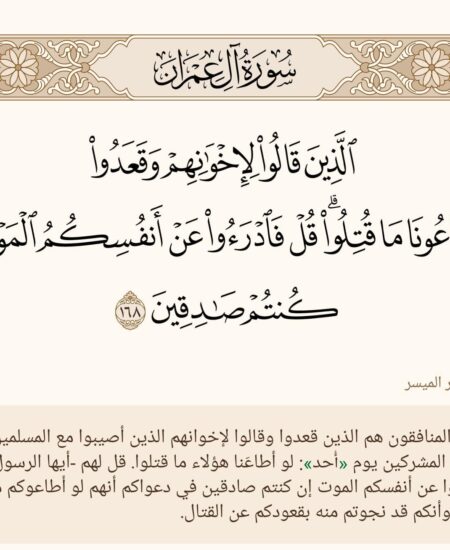 سُورَةُ آلِ عِمْرَانَ
ٱلَّذِينَ قَالُواْ لِإِخۡوَٰنِهِمۡ وَقَعَدُواْ
عُونَا مَا قُتِلُواْۗ قُلۡ فَٱدۡرَءُواْ عَنۡ أَنفُسِكُمُ ٱلۡمَوۡ
كُنتُمۡ صَٰدِقِينَ ١٦٨
ر الميسر
المنافقون هم الذين قعدوا وقالوا لإخوانهم الذين أصيبوا مع المسلمين
المشركين يوم «أُحد»: لو أطاعَنا هؤلاء ما قتلوا. قل لهم -أيها الرسول
وا عن أنفسكم الموت إن كنتم صادقين في دعواكم أنهم لو أطاعوكم م
وأنكم قد نجوتم منه بقعودكم عن القتال.